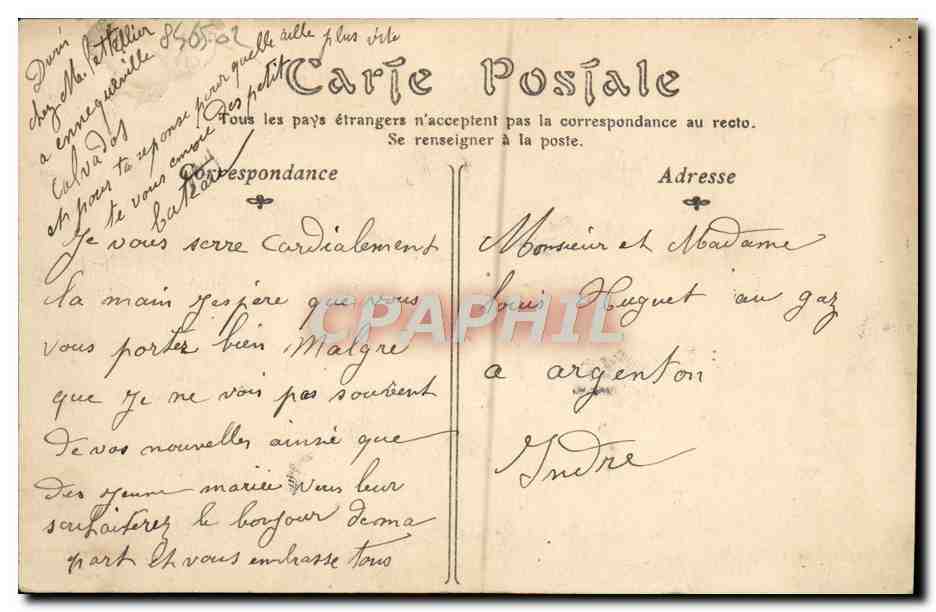 Durin
chez Me. Letellier
a ennequeville
Calvados
et pour ta reponse pour quelle aille plus vite
te vous envoie des petit
bateau
89565-02
Carte Postale
Tous les pays étrangers n'acceptent pas la correspondance au recto.
Se renseigner à la poste.
Correspondance
Je vous serre Cardialement
la main J'espère que vous
vous portez bien Malgre
que Je ne vois pas souvent
de vos nouvelles ainsie que
Des Jeune mariée Vous leur
souhaiterez le bonjour de ma
part Et vous embrasse tous
Adresse
Monsieur et Madame
Louis Huguet au gaz
a argenton
Indre
CPAPHIL